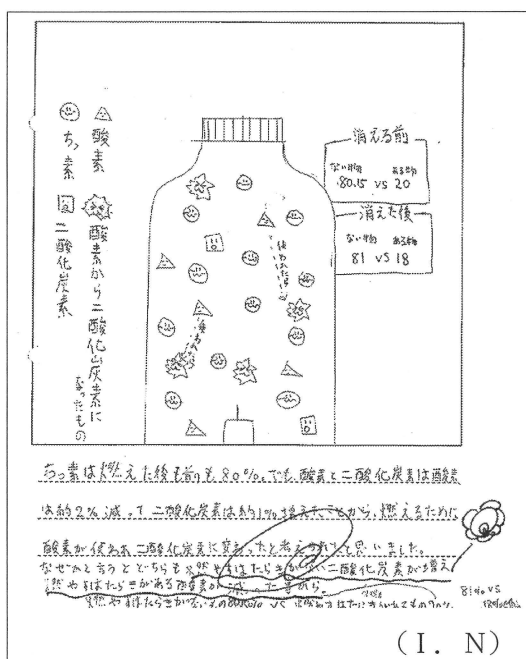 酸素
ちっ素
酸素から二酸化炭素に
なったもの
二酸化炭素
消える前
ない物 ある物
80.15 vs 20
消えた後
ない物 ある物
81 vs 18
ちっ素は燃えた後も前も80%。でも、酸素と二酸化炭素は酸素
は約2%減って二酸化炭素は約1%増えたことから、燃えるために
酸素が使われ二酸化炭素に変わったと考えられると思いました。
なぜかと言うとどちらも燃やすはたらきがない二酸化炭素が増え
燃やすはたらきがある酸素が減ったから。
燃やすはたらきがないもの vs 燃やすはたらきがあるもの
81% vs
(I. N)